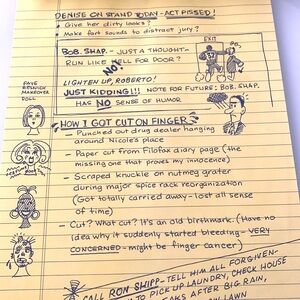 DENISE ON STAND TODAY - ACT PISSED!
• GIVE HER DIRTY LOOKS?
• MAKE FART SOUNDS TO DISTRACT JURY?
EXIT
BOB. SHAP. - JUST A THOUGHT -
RUN LIKE HELL FOR DOOR?
NO!
LIGHTEN UP, ROBERTO!
JUST KIDDING!!! NOTE FOR FUTURE: BOB. SHAP.
HAS NO SENSE OF HUMOR
FAYE
RESNICK
MAKEOVER
DOLL
HOW I GOT CUT ON FINGER
- PUNCHED OUT DRUG DEALER HANGING
AROUND NICOLE'S PLACE
- PAPER CUT FROM FILOFAX DIARY PAGE (THE
MISSING ONE THAT PROVES MY INNOCENCE)
- SCRAPED KNUCKLE ON NUTMEG GRATER
DURING MAJOR SPICE RACK REORGANIZATION
(GOT TOTALLY CARRIED AWAY - LOST ALL SENSE
OF TIME)
- CUT? WHAT CUT? IT'S AN OLD BIRTHMARK. (HAVE NO
IDEA WHY IT SUDDENLY STARTED BLEEDING - VERY
CONCERNED - MIGHT BE FINGER CANCER)
CALL RON SHIPP - TELL HIM ALL FORGIVEN -
TO PICK UP LAUNDRY, CHECK HOUSE
AFTER BIG RAIN,
LAWN